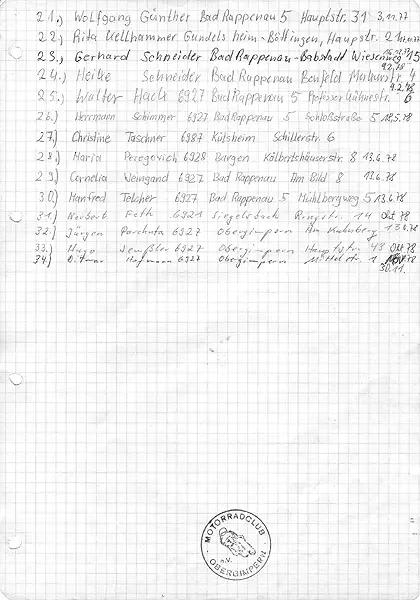 21.) Wolfgang Günther Bad Rappenau 5 Hauptstr. 31 3.11.77
22.) Rita Kellhammer Gundelsheim-Böttingen, Hauptstr. 2
23.) Gerhard Schneider Bad Rappenau-Babstadt Wiesenweg 15
24.) Heike Schneider Bad Rappenau Bonfeld 4 9.2.78
25.) Walter Hack 6927 Bad Rappenau 5 Professor Kühnestr. 6 9.2.78
26.) Herrmann Schimmer 6927 Bad Rappenau 5 Schloßstraße 5 18.5.78
27.) Christine Taschner 6987 Külsheim Schillerstr. 6
28.) Maria Peregovich 6928 Bargen Kälbertshäuserstr. 8 13.6.78
29.) Cornelia Weingand 6927 Bad Rappenau Am Bild 8 13.6.78
30.) Manfred Telcher 6927 Bad Rappenau 5 Mühlbergweg 5 13.6.78
31.) Norbert Feth 6921 Siegelsbach Ringstr. 14 Okt 78
32.) Jürgen 6927 Obergimpern Am
33.) Hugo 6927 Obergimpern Hauptstr. 43 Okt 78
34.) Ditmar Hofmann 6927 Obergimpern 1
30.11.
MOTORRADCLUB
e.V.
OBERGIMPERN